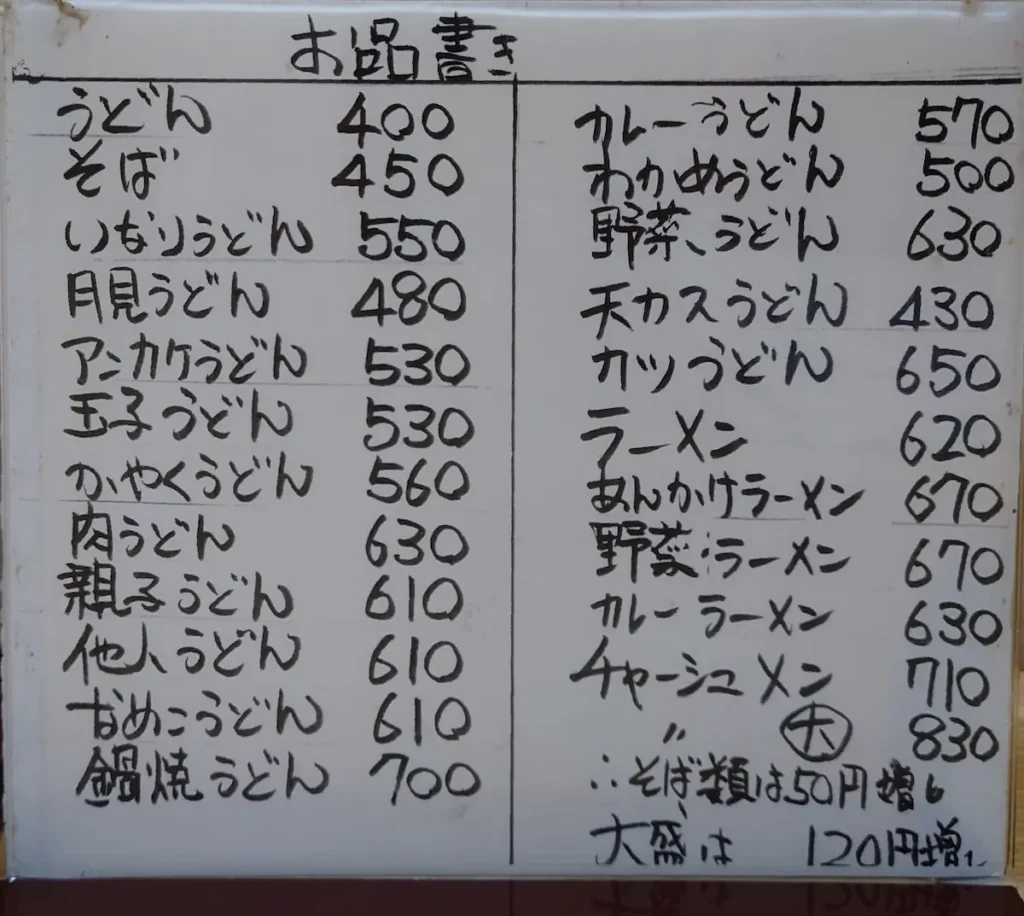 お品書き
うどん 400
そば 450
いなりうどん 550
月見うどん 480
アンカケうどん 530
玉子うどん 530
かやくうどん 560
肉うどん 630
親子うどん 610
他人うどん 610
なめこうどん 610
鍋焼うどん 700
カレーうどん 570
わかめうどん 500
野菜うどん 630
天カスうどん 430
カツうどん 650
ラーメン 620
あんかけラーメン 670
野菜ラーメン 670
カレーラーメン 630
チャーシュメン 710
〃 大 830
∴そば類は50円増し
大盛は 120円増し